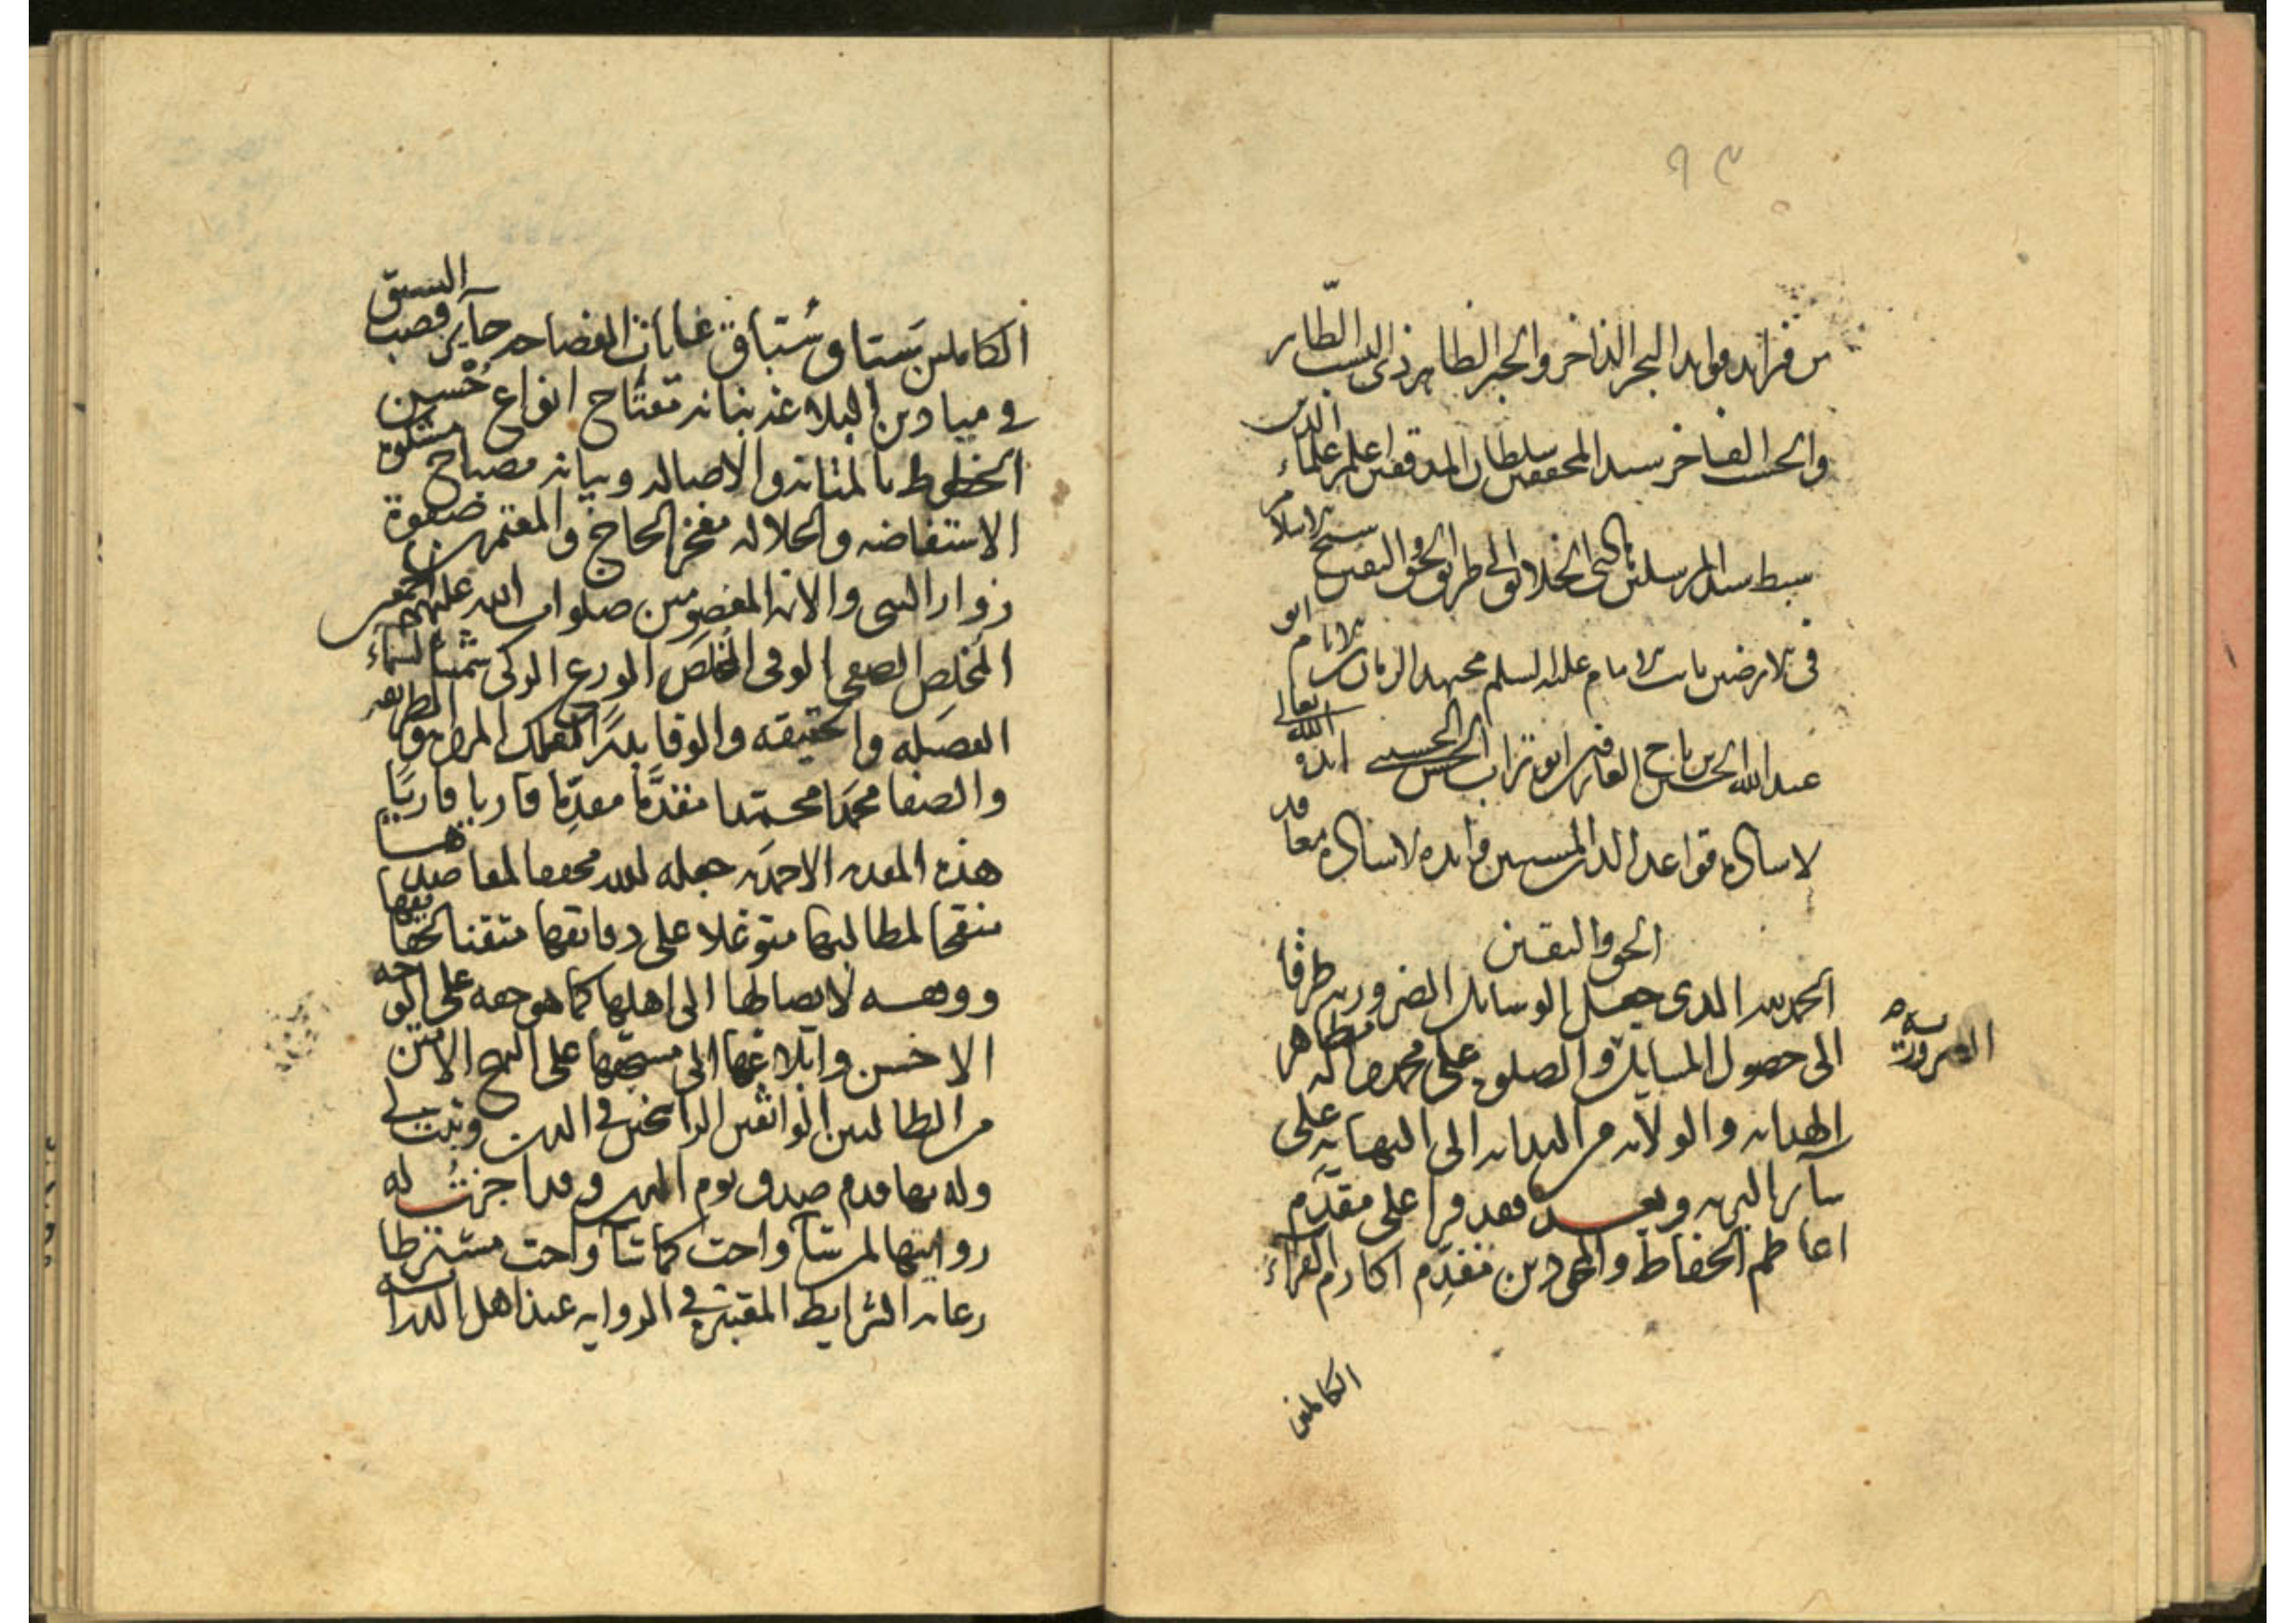 ٩٣
من فرائد فوايد البحر الزاخر والحبر الطاهر ذى النسب الطّاهر
والحسب الفاخر سيد المحققين سلطان المدققين اعلم علماء الدين
سبط سيد المرسلين الى الخلايق الى طريق الحق واليقين شيخ الاسلام
فى الارضين نايب الامام عليه السلم مجتهد الزمان الانام ابو
عبد الله الحسين الحسن الحسينى الله تعالى
لاساك قواعد الدين المبين فوايده لاساك معاقد
الحق واليقين
الحمد لله الذى جعل الوسايل الضروريه طرقا
الى حصول المسايل والصلوة على محمد واله مظاهر
الهدايه والولايه من البدايه الى النهايه على
سآير البريه وبعد فقد قرأ على مقدّم
اعاظم الحفاظ والمجودين مقدِّم اكارم القرآء
الضرورية
الكاملين
الكاملين سَتاق سُتباق غايات الفصاحه حآيز قصب السبق
فى ميادين البلاغه بنانه مفتاح انواع حُسن
الخطوط بالمتانه والاصاله وبيانه مصباح مشكوة
الاستفاضه والجلاله مفخر الحاج والمعتمرين صفوة
زوار النبى والائمه المعصومين صلوات الله عليهم اجمعين
المخلِص الصفى الوفى المخلَص الورع الزكى شمساً لسماء
الفضيله والحقيقه والوفا بدرًا لفلك المروة والطريقه
والصفا محمدًا محمدا مقدَّما مقدِّما قاريا قاريًا
هذه المقدمه الاحمديه جعله الله محققا لمقاصدها
منقحا لمطالبها متوغلا على دقايقها متقنا لحقايقها
ووفقه لايصالها الى اهلها كما هو حقه على الوجه
الاحسن وابلاغها الى مستحقها على النهج الامتن
من الطالبين الواثقين الراسخين فى الدين وثبت لى
وله بها قدم صدق يوم الدين وقد اجزتُ له
روايتها لمن شآ واحب كما شآ واحب مشترطا
رعايه الشرايط المعتبره فى الروايه عند اهل الدرايه